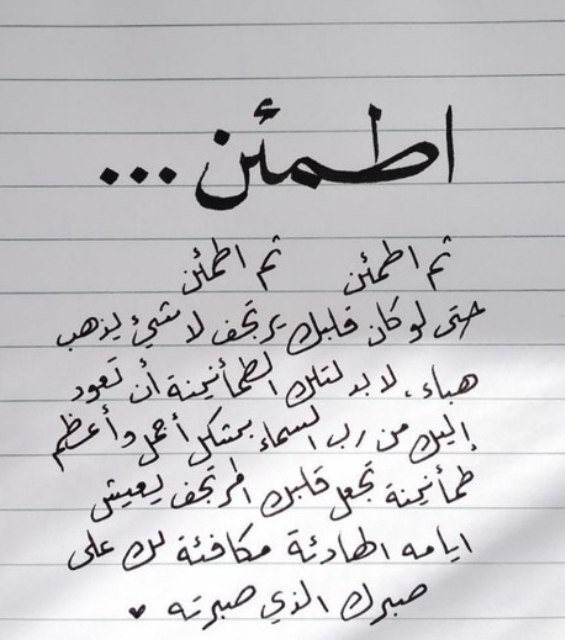 اطمئن ...
ثم اطمئن ثم اطمئن
حتى لو كان قلبك يرتجف لا شيئ يذهب
هباء، لا بد لتلك الطمأنينة أن تعود
إليك من رب السماء بشكل أجمل وأعظم
طمأنينة تجعل قلبك المرتجف يعيش
ايامه الهادئة مكافئة لك على
صبرك الذي صبرته ♥